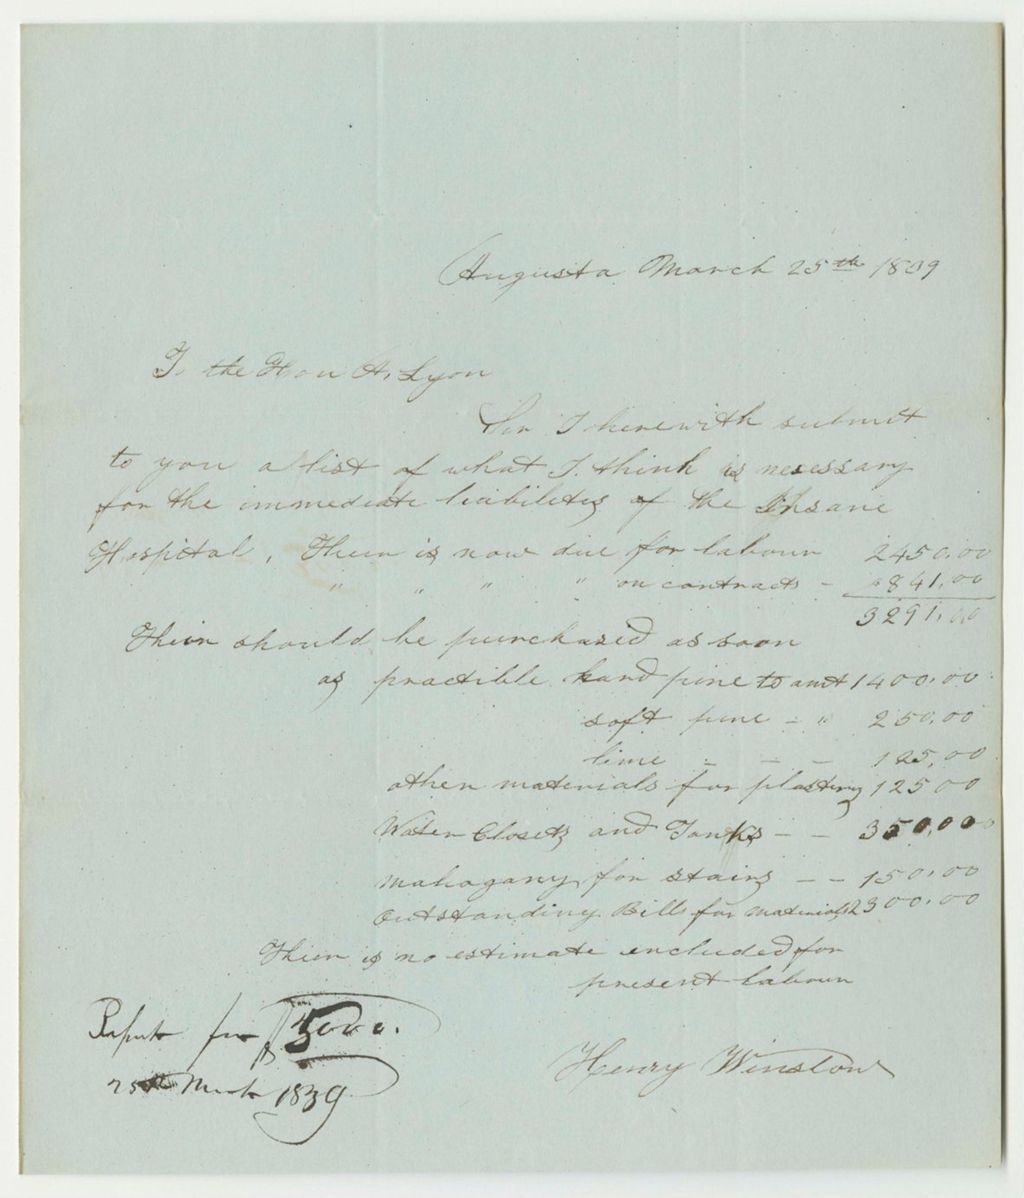 Augusta March 25th 1839
To the Hon A. Lyon
Sir I herewith submit
to you a list of what I think is necessary
for the immediate liabilites of the Insane
Hospital, Their is now due for labour 2450.00
" " " " on contracts - 841.00
3291.00
Their should be purchased as soon
as practible hard pine to amt 1400.00
soft pine - " 250.00
lime - - - 125.00
other materials for plastring 125 00
Water Closets and Tanks - - 350.00
Mahogany for stairs - - 150.00
Outstanding Bills for materials 2300.00
Their is no estimate included for
present labour
Henry Winslow
for $5000.
25th March 1839